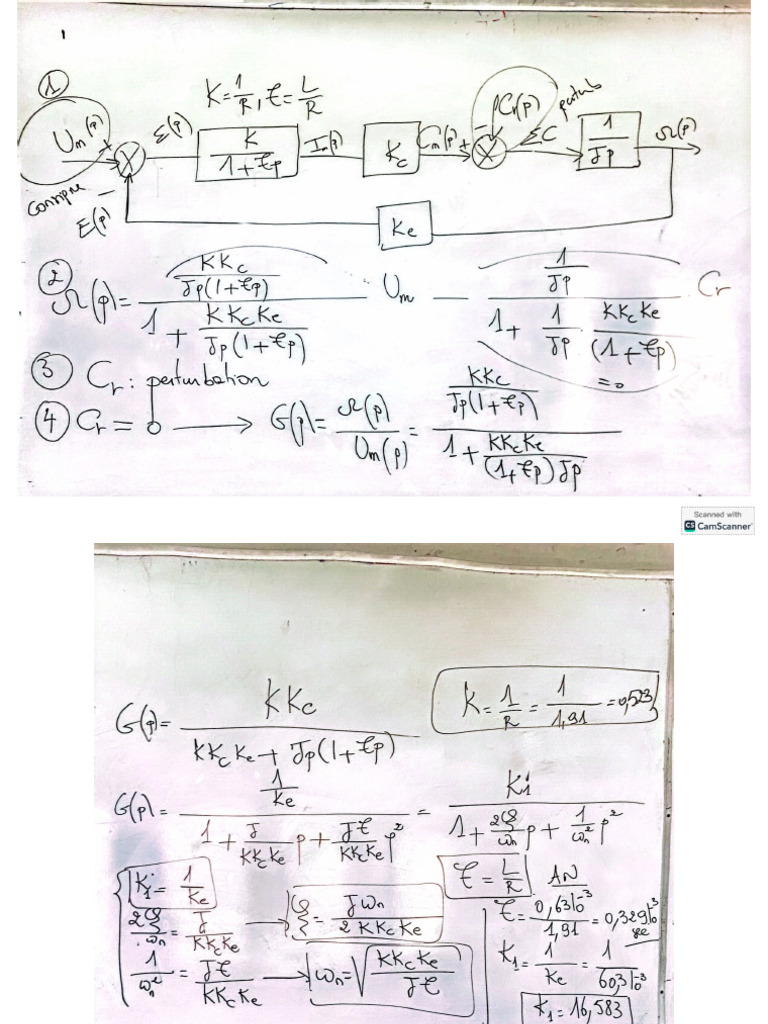 1
①
K=1/R, Ƭ=L/R
Um(p) + Ɛ(p) K/(1+Ƭp) Im(p) Kc Cm(p) + - Cr(p) perturb ΣC 1/(Jp) Ω(p)
Consigne -
E(p)
Ke
② Ω(p) = (KKc/(Jp(1+Ƭp)))/(1 + KKcKe/(Jp(1+Ƭp))) · Um - (1/(Jp))/(1 + 1/(Jp) · KKcKe/(1+Ƭp)) · Cr
=0
③ Cr : perturbation
④ Cr = 0 → G(p) = Ω(p)/Um(p) = (KKc/(Jp(1+Ƭp)))/(1 + KKcKe/((1+Ƭp)Jp))
Scanned with
CS CamScanner
G(p) = KKc/(KKcKe + Jp(1+Ƭp))
K = 1/R = 1/1,91 = 0,523
G(p) = (1/Ke)/(1 + J/(KKcKe) p + JƬ/(KKcKe) p²) = Ki/(1 + 2ξ/ωn p + 1/ωn² p²)
Ki = 1/Ke
2ξ/ωn = J/(KKcKe) → ξ = Jωn/(2KKcKe)
1/ωn² = JƬ/(KKcKe) → ωn = √(KKcKe/(JƬ))
Ƭ = L/R
AN
Ƭ = 0,63 10⁻³/1,91 = 0,329 10⁻³
K1 = 1/Ke = 1/(60,3 10⁻³)
K1 = 16,583